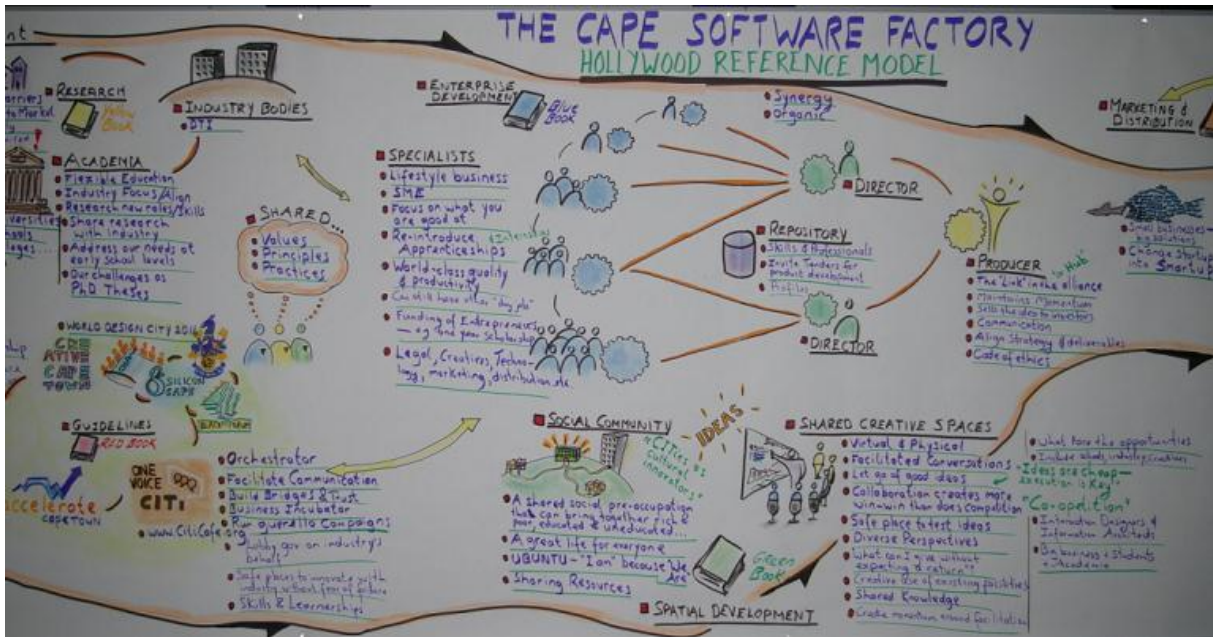 THE CAPE SOFTWARE FACTORY
HOLLYWOOD REFERENCE MODEL
RESEARCH
Yellow
Book
to Market
INDUSTRY BODIES
DTI
ACADEMIA
Flexible Education
Industry Focus/Align
Research new roles/Skills
Share research
with industry
Address our needs at
early school levels
Our challenges as
PhD Theses
SHARED...
Values
Principles
Practices
WORLD DESIGN CITY 2014
CRE
ATIVE
CAPE
TOWN
SILICON
CAPE
BANDWIDTH BARN
GUIDELINES
RED BOOK
accelerate
CAPE TOWN
ONE
VOICE
CITi
www.CitiCafe.org
Orchestrator
Facilitate Communication
Build Bridges & Trust
Business Incubator
Run guerello Campaigns
lobby gov on industry's
behalf
Safe places to innovate with
industry without fear of failure
Skills & Learnerships
ENTERPRISE
DEVELOPMENT
BLUE
BOOK
SPECIALISTS
Lifestyle business
SME
Focus on what you
are good at
Re-introduce
Apprenticeships
World-class quality
& productivity
Can still have other "day job"
Funding of Entrepreneurs
— eg one year scholarship
Legal, Creatives, Techno-
logy, marketing, distribution, etc
Synergy
Organic
DIRECTOR
REPOSITORY
Skills & Professionals
Invite Tenders for
product development
Profiles
DIRECTOR
PRODUCER
"Hub"
The "Link" in the alliance
Maintains Momentum
Sells the idea to investors
Communication
Align Strategy & deliverables
Code of ethics
MARKETING &
DISTRIBUTION
Small businesses—
big solutions
Change startup
into Smartup
SOCIAL COMMUNITY
"CITIES as
cultural
innovators"
A shared social pre-occupation
that can bring together rich &
poor, educated & uneducated...
A great life for everyone
UBUNTU - "I am" because "We
Are"
Sharing Resources
IDEAS
GREEN
BOOK
SPATIAL DEVELOPMENT
SHARED CREATIVE SPACES
Virtual & Physical
Facilitated Conversations
Let go of good ideas
Collaboration creates more
win-win than does competition
Safe place to test ideas
Diverse Perspectives
What can I give without
expecting a return"
Creative use of existing facilities
Shared Knowledge
Create momentum around facilitation
What are the opportunities
Include
"Ideas are cheap—
execution is Key"
"Co-opetition"
Information Designers &
Information Architects
Big business + Students
+ Academia